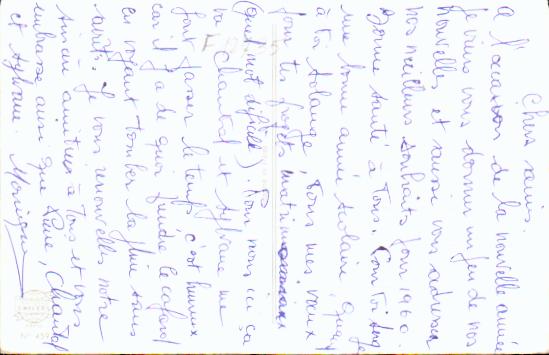 Chers amis
A l'occasion de la nouvelle année
je viens vous donner un peu de nos
nouvelles et aussi vous adresser
nos meilleurs souhaits pour 1960.
Bonne santé à tous.
une bonne année scolaire. Quant
à toi Solange, tous mes vœux
pour tes projets
(quel mot difficile). Pour nous ici ça
va Chantal et Sylviane me
font passer le temps, c'est heureux
car il y a de quoi prendre le cafard
en voyant tomber la pluie sans
arrêt. Je vous renouvelle notre
amitié à tous et vous
embrasse ainsi que Pierre, Chantal
et Sylviane. Monique